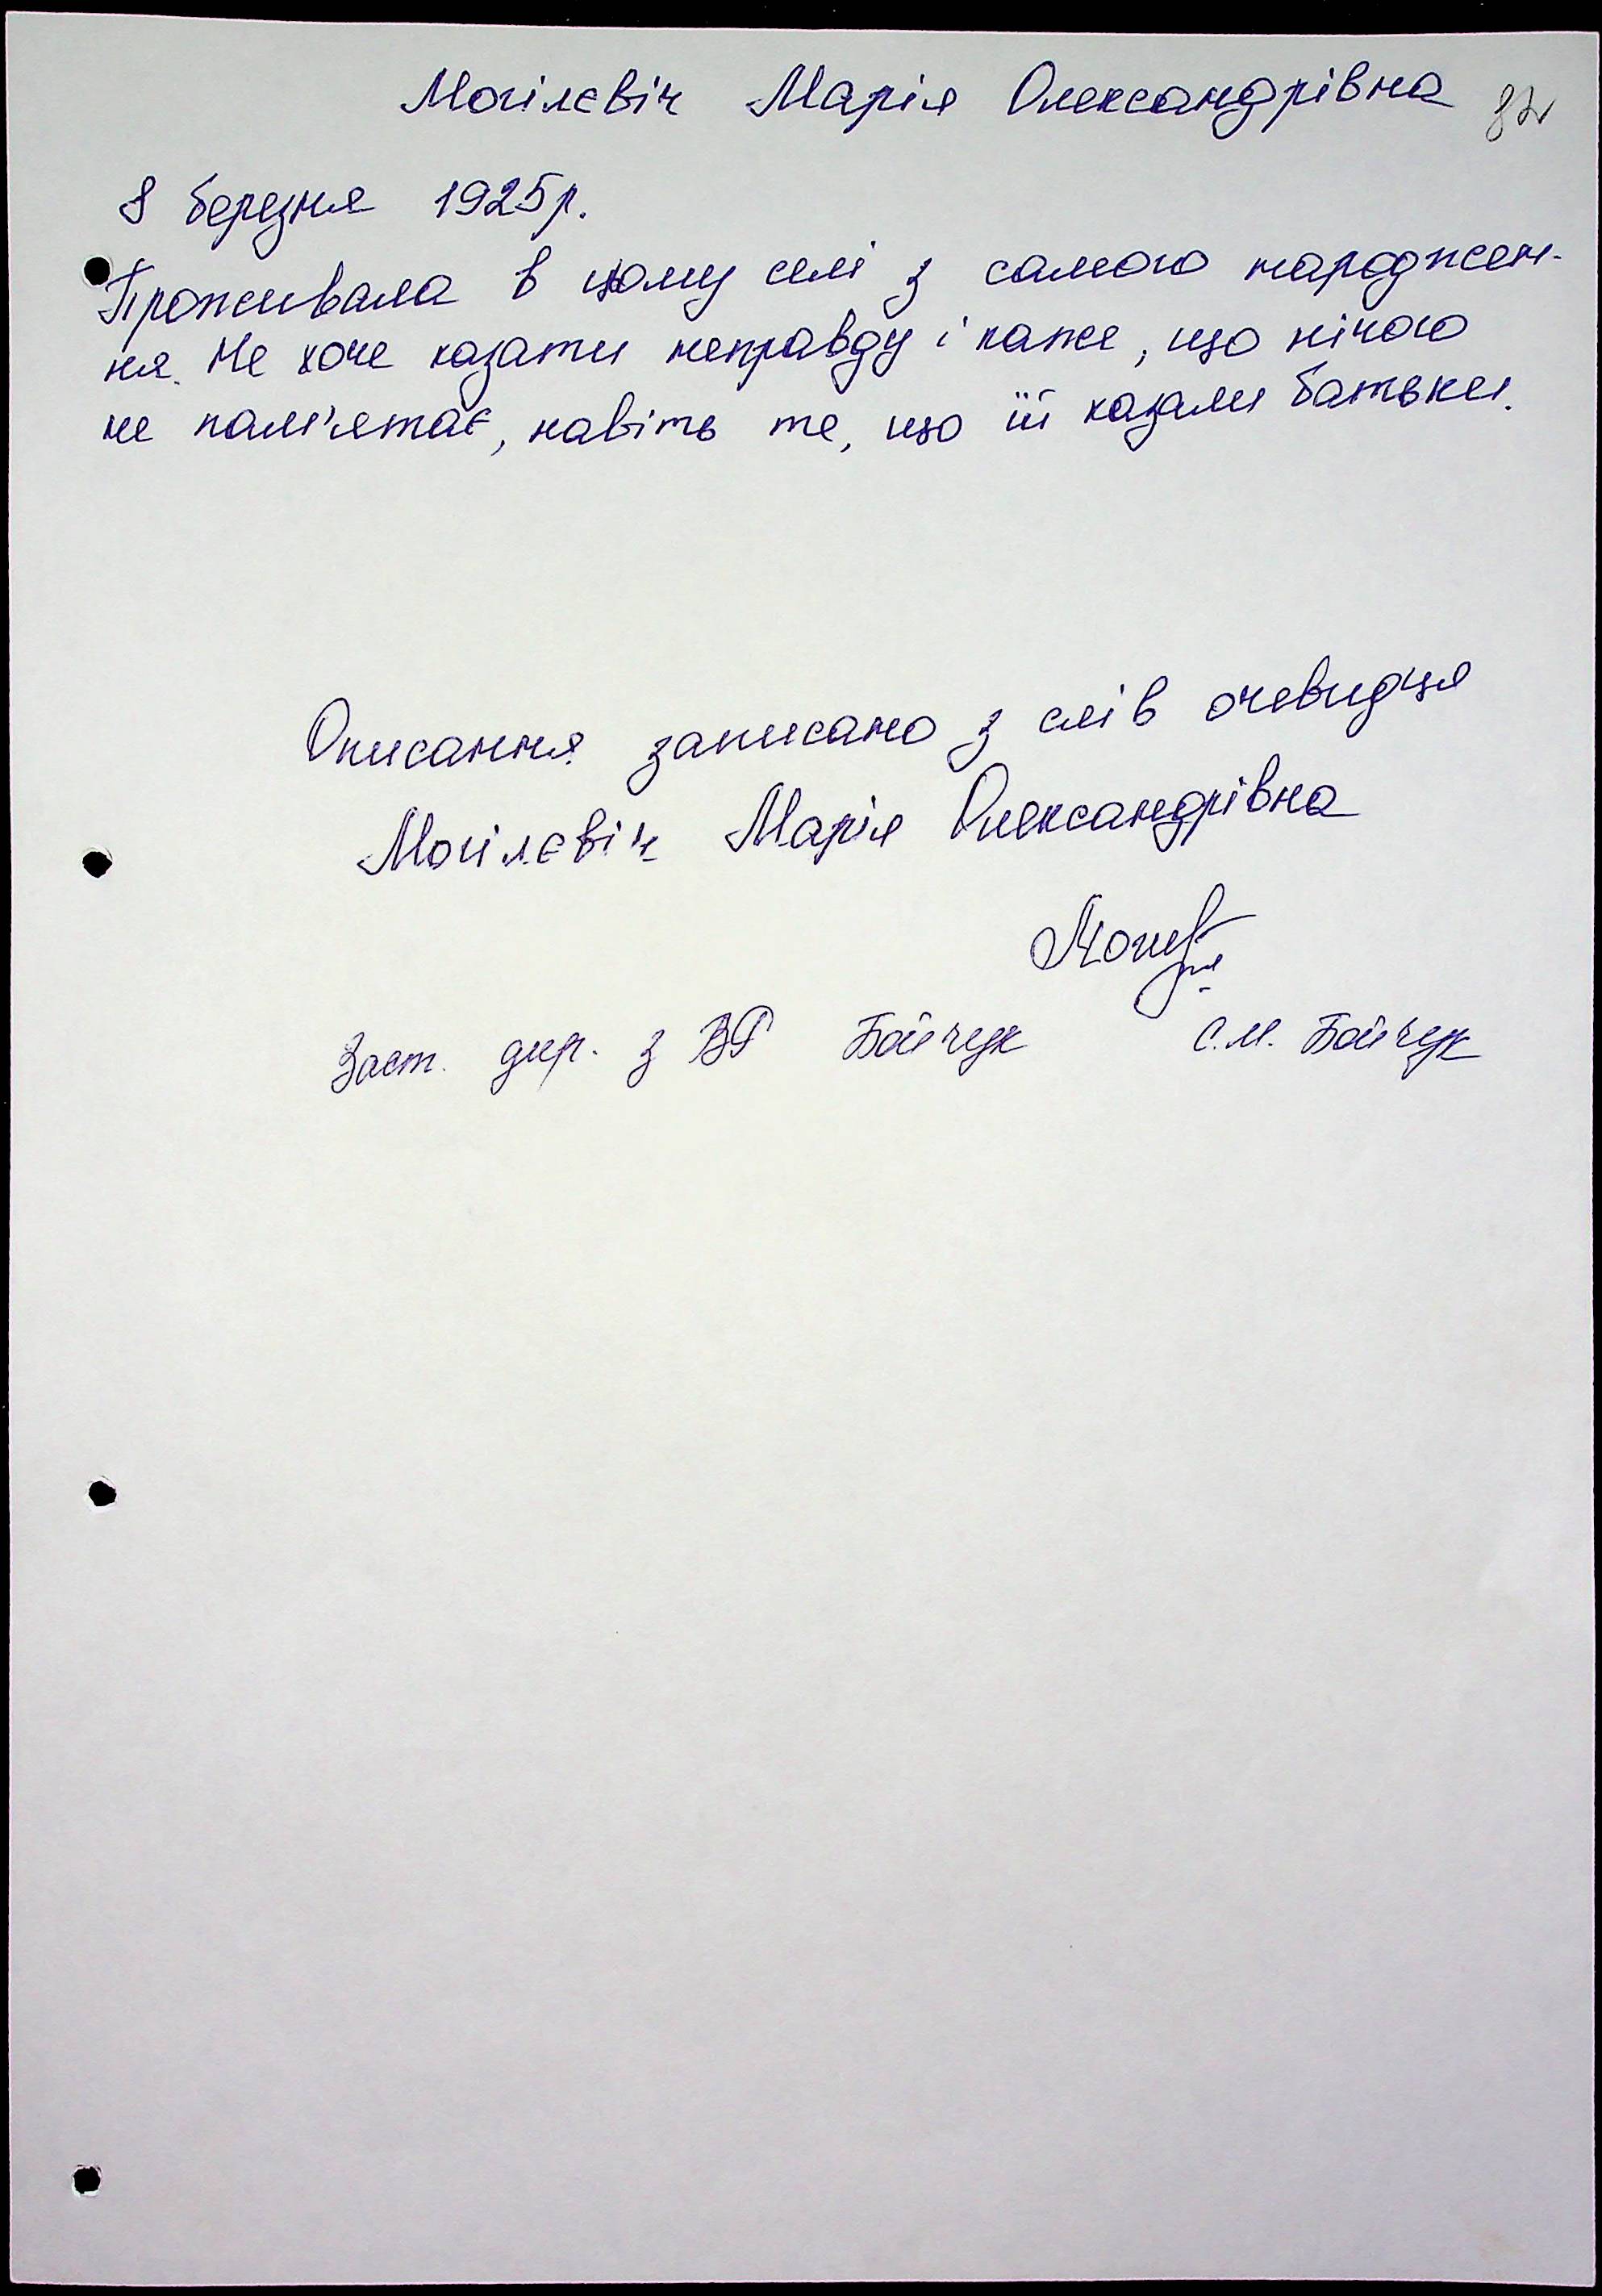 Могілєвіч Марія Олександрівна
8 березня 1925р.
Проживала в цьому селі з самого народжен-
ня. Не хоче казати неправду і каже, що нічого
не пам'ятає, навіть те, що їй казали батьки.
Описання записано з слів очевидця
Могілєвіч Марія Олександрівна
Заст. дир. з ВР Бойчук С.М. Бойчук